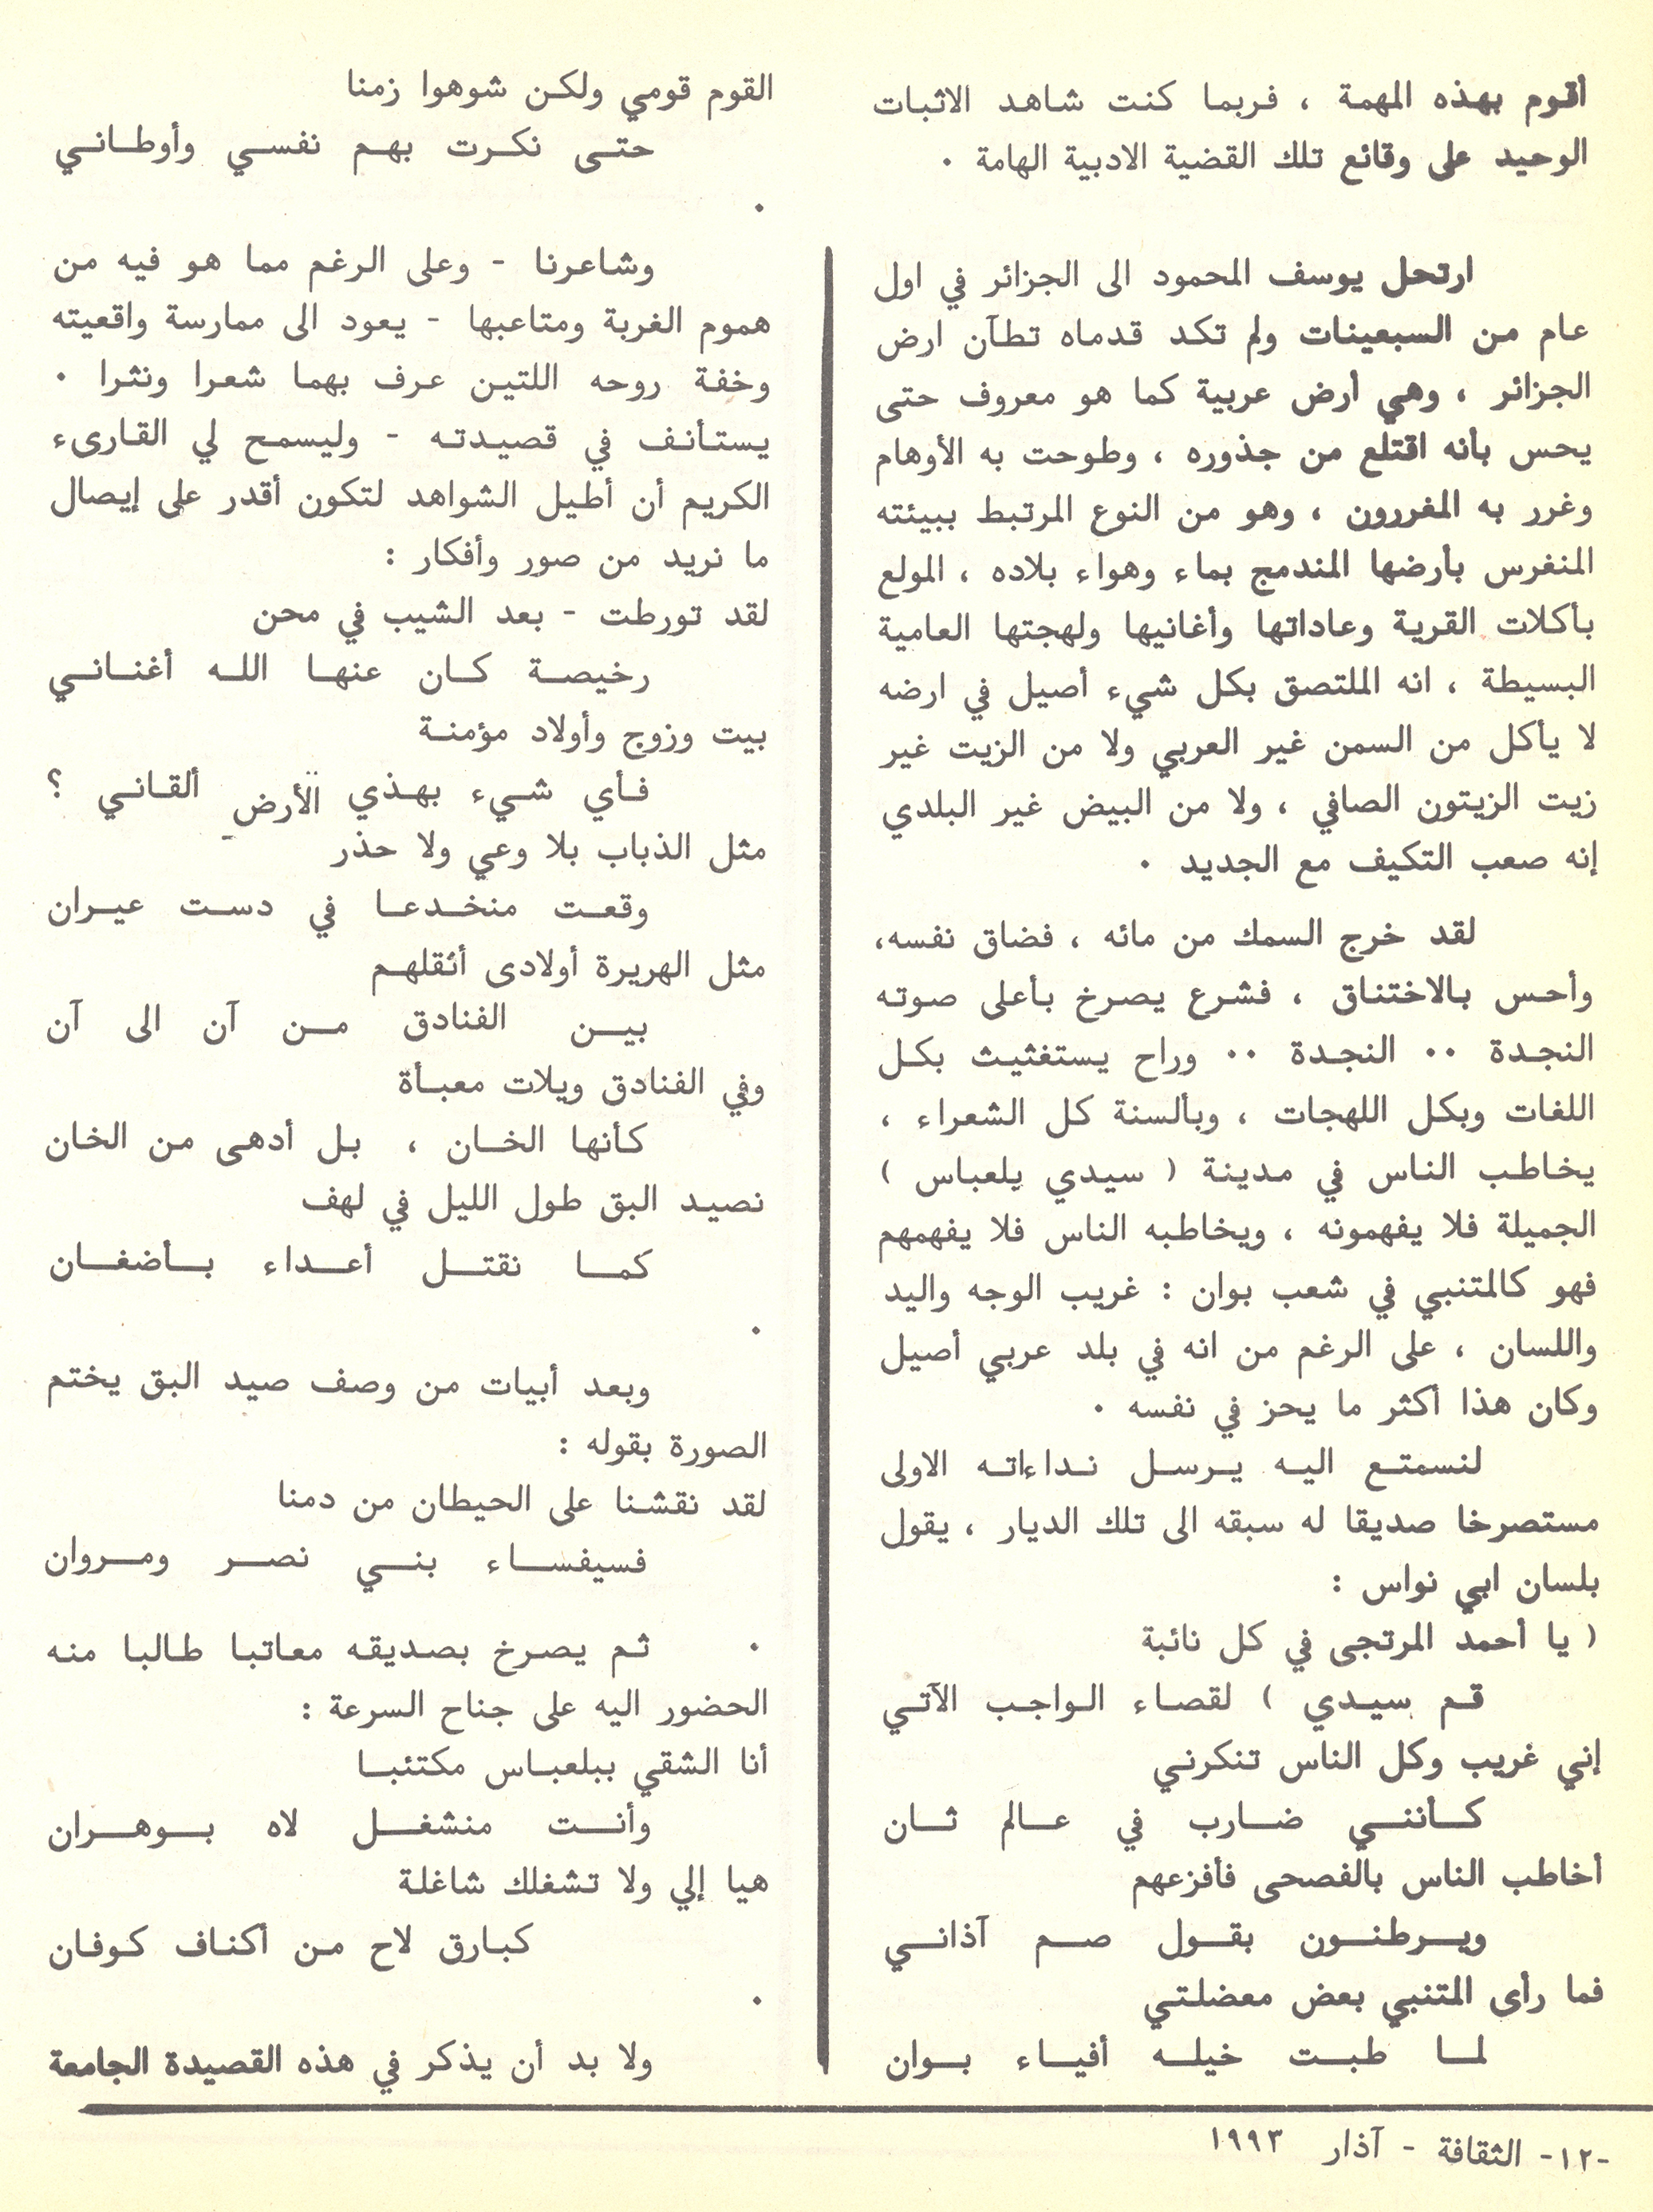 أقوم بهذه المهمة ، فربما كنت شاهد الاثبات
الوحيد على وقائع تلك القضية الادبية الهامة ٠
ارتحل يوسف المحمود الى الجزائر في اول
عام من السبعينات ولم تكد قدماه تطآن ارض
الجزائر ، وهي أرض عربية كما هو معروف حتى
يحس بأنه اقتلع من جذوره ، وطوحت به الأوهام
وغرر به المغررون ، وهو من النوع المرتبط ببيئته
المنغرس بأرضها المندمج بماء وهواء بلاده ، المولع
بأكلات القرية وعاداتها وأغانيها ولهجتها العامية
البسيطة ، انه الملتصق بكل شيء أصيل في ارضه
لا يأكل من السمن غير العربي ولا من الزيت غير
زيت الزيتون الصافي ، ولا من البيض غير البلدي
إنه صعب التكيف مع الجديد ٠
لقد خرج السمك من مائه ، فضاق نفسه،
وأحس بالاختناق ، فشرع يصرخ بأعلى صوته
النجدة ٠٠ النجدة ٠٠ وراح يستغثيث بكل
اللغات وبكل اللهجات ، وبألسنة كل الشعراء ،
يخاطب الناس في مدينة ( سيدي يلعباس )
الجميلة فلا يفهمونه ، ويخاطبه الناس فلا يفهمهم
فهو كالمتنبي في شعب بوان : غريب الوجه واليد
واللسان ، على الرغم من انه في بلد عربي أصيل
وكان هذا أكثر ما يحز في نفسه ٠
لنسمتع اليه يرسل نداءاته الاولى
مستصرخا صديقا له سبقه الى تلك الديار ، يقول
بلسان ابي نواس :
( يا أحمد المرتجى في كل نائبة
قم سيدي ) لقصاء الواجب الآتي
إني غريب وكل الناس تنكرني
كأنني ضارب في عالم ثان
أخاطب الناس بالفصحى فأفزعهم
ويرطنون بقول صم آذاني
فما رأى المتنبي بعض معضلتي
لما طبت خيله أفياء بوان
القوم قومي ولكن شوهوا زمنا
حتى نكرت بهم نفسي وأوطاني
٠
وشاعرنا - وعلى الرغم مما هو فيه من
هموم الغربة ومتاعبها - يعود الى ممارسة واقعيته
وخفة روحه اللتين عرف بهما شعرا ونثرا ٠
يستأنف في قصيدته - وليسمح لي القارىء
الكريم أن أطيل الشواهد لتكون أقدر على إيصال
ما نريد من صور وأفكار :
لقد تورطت - بعد الشيب في محن
رخيصة كان عنها الله أغناني
بيت وزوج وأولاد مؤمنة
فأي شيء بهذي الأرض ألقاني ؟
مثل الذباب بلا وعي ولا حذر
وقعت منخدعا في دست عيران
مثل الهريرة أولادى أنقلهم
بين الفنادق من آن الى آن
وفي الفنادق ويلات معبأة
كأنها الخان ، بل أدهى من الخان
نصيد البق طول الليل في لهف
كما نقتل أعداء بأضغان
٠
وبعد أبيات من وصف صيد البق يختم
الصورة بقوله :
لقد نقشنا على الحيطان من دمنا
فسيفساء بني نصر ومروان
٠ ثم يصرخ بصديقه معاتبا طالبا منه
الحضور اليه على جناح السرعة :
أنا الشقي ببلعباس مكتئبا
وأنت منشغل لاه بوهران
هيا إلي ولا تشغلك شاغلة
كبارق لاح من أكناف كوفان
٠
ولا بد أن يذكر في هذه القصيدة الجامعة
-١٢- الثقافة - آذار ١٩٩٣